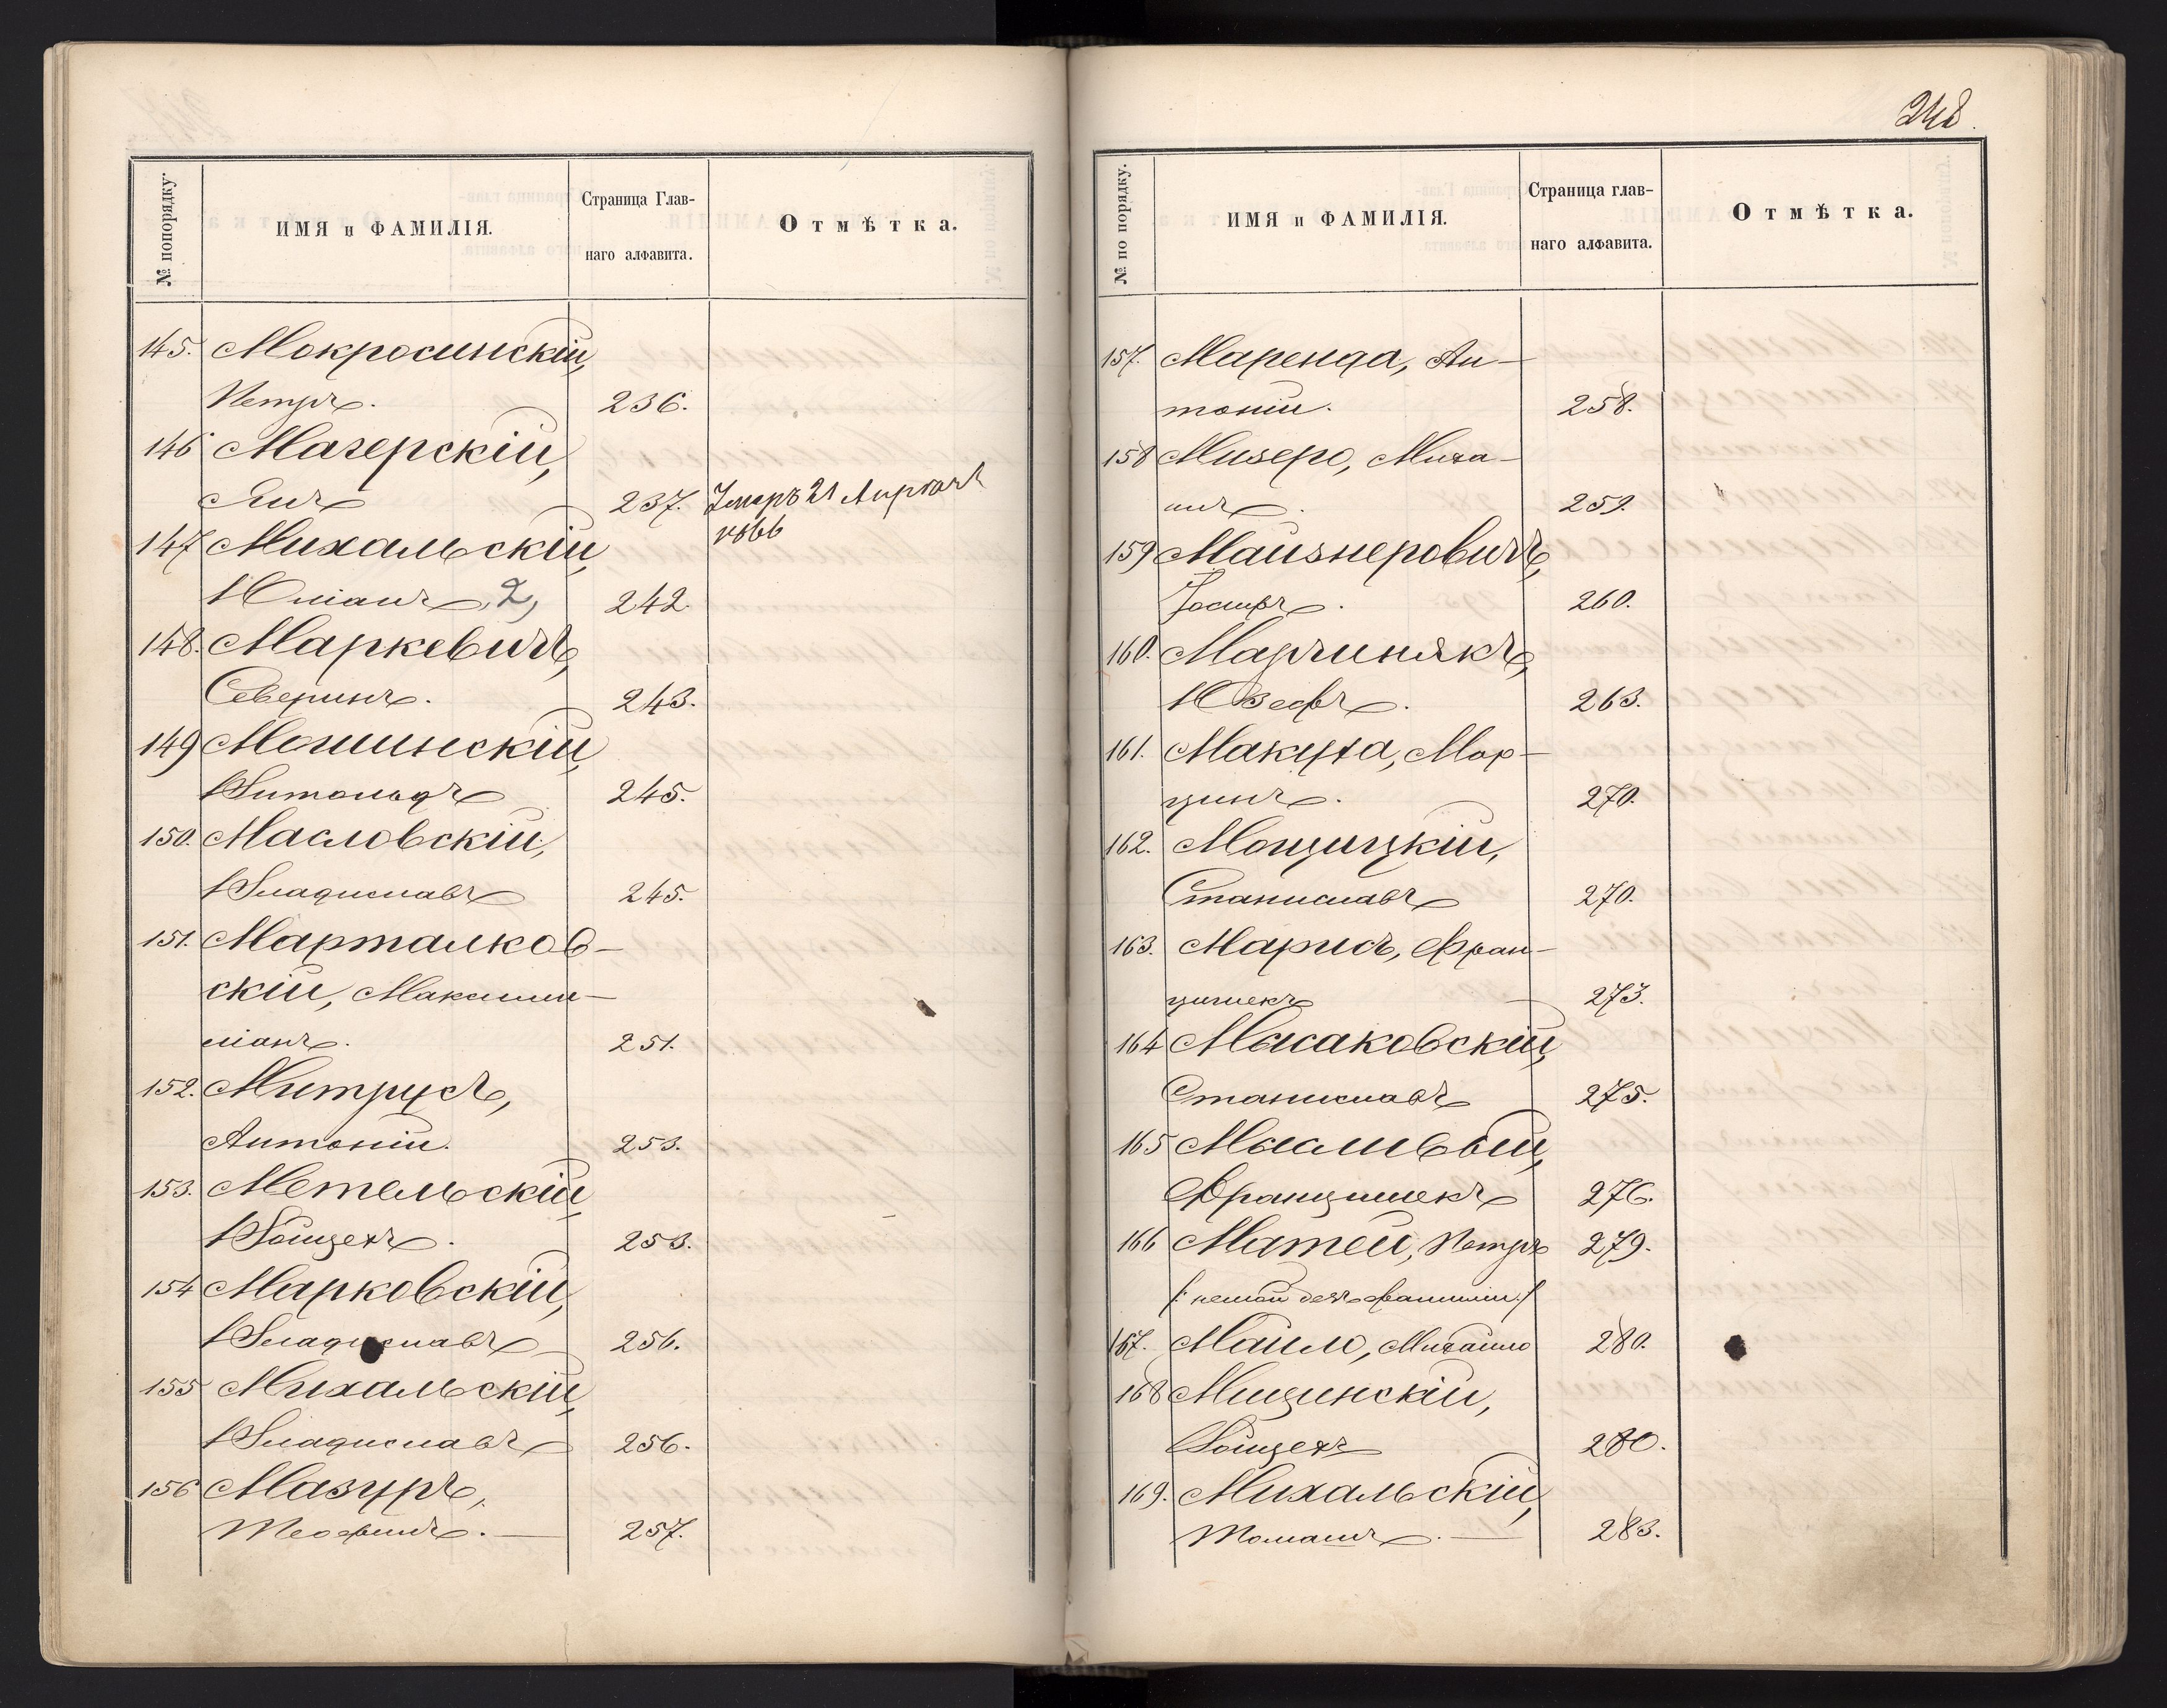 № попорядку.
ИМЯ и ФАМИЛІЯ.
Страница Глав-
наго алфавита.
Отмѣтка.
145. Мокросинскій,
Петръ. 236.
146 Мачерскій,
Янъ 237. Умеръ 21 Апрѣля
1866
147 Михальскій,
Юліанъ 2, 242.
148. Маркевичъ,
Северинъ. 243.
149 Мошинскій,
Витольдъ 245.
150. Масловскій,
Владиславъ 245.
151. Марталков-
скій, Максими-
ліанъ. 251.
152. Митрусъ,
Антоній. 253.
153. Метельскій,
Войцехъ. 253.
154 Марковскій,
Владиславъ 256.
155 Михальскій,
Владиславъ 256.
156 Мазуръ,
Теофилъ. 257.
248.
№ по порядку.
ИМЯ и ФАМИЛІЯ.
Страница глав-
наго алфавита.
Отмѣтка.
157. Маренда, Ан-
тоній. 258.
158 Мизеро, Миха-
илъ. 259.
159 Майзнеровичъ,
Іосифъ. 260.
160. Марчинякъ,
Юзефъ. 263.
161. Макуха, Мар-
цинъ. 270.
162. Мощицкій,
Станиславъ 270.
163. Марисъ, Фран-
цишекъ 273.
164 Мысаковскій,
Станиславъ 275.
165 Мысливый,
Францишекъ 276.
166 Матей, Петръ 279.
/: немой безъ фамиліи :/
167. Майло, Михайло 280.
168 Мищинскій,
Войцехъ 280.
169. Михальскій,
Томашъ. 283.